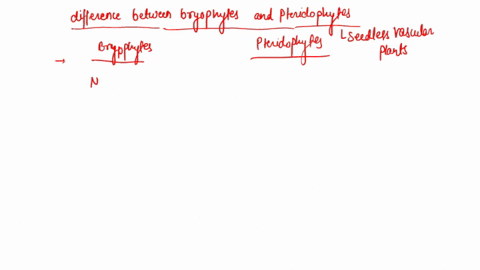 difference between bryophytes and Pteridophytes
Bryophytes
Pteridophytes
Seedless vascular
plants
→
N